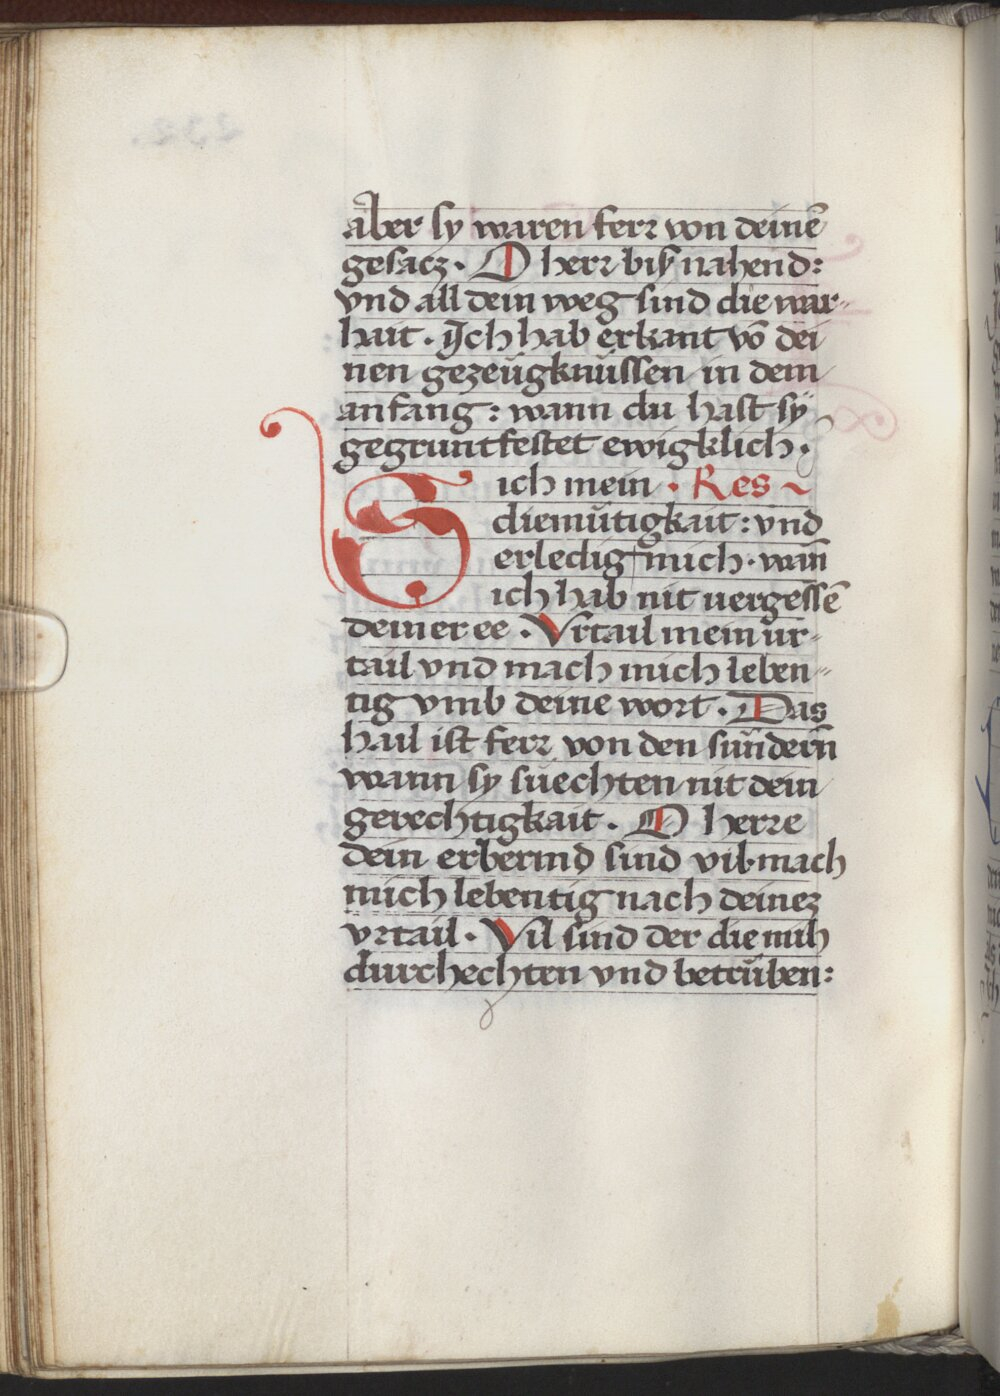 aber sy waren ferr von deinē
gesacz · O herr bis nahend:
vnd all dein weg sind die war-
hait · Jch hab erkant vō dei
nen gezeügknüssen in dem
anfang: wann du hast sy
gegruntfestet ewigklich ·
Sich mein · Res
diemütigkait: vnd
erledig mich · wañ
ich hab nit uergessē
deiner ee · Vrtail mein ur-
tail vnd mach mich leben-
tig vmb deine wort · Das
hail ist ferr von den sündern̄
wann sy süechten nit dein
gerechtigkait · O herre
dein erbermd sind vil· mach
mich lebentig nach deinez
vrtail · Vil sind der die mih
durchechten vnd betrüben: